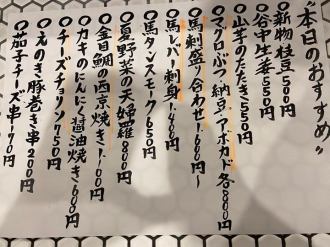 "本日のおすすめ"
新物枝豆500円
谷中生姜550円
山芋のたたき550円
マグロぶつ・納豆・アボカド各800円
馬刺盛り合わせ1,600円〜
馬レバー刺身1,400円
馬タンスモーク650円
夏野菜の天婦羅800円
金目鯛の西京焼き1,100円
カキのにんにく醤油焼き600円
チーズチョリソ750円
えのき豚巻き串200円
茄子チーズ串170円